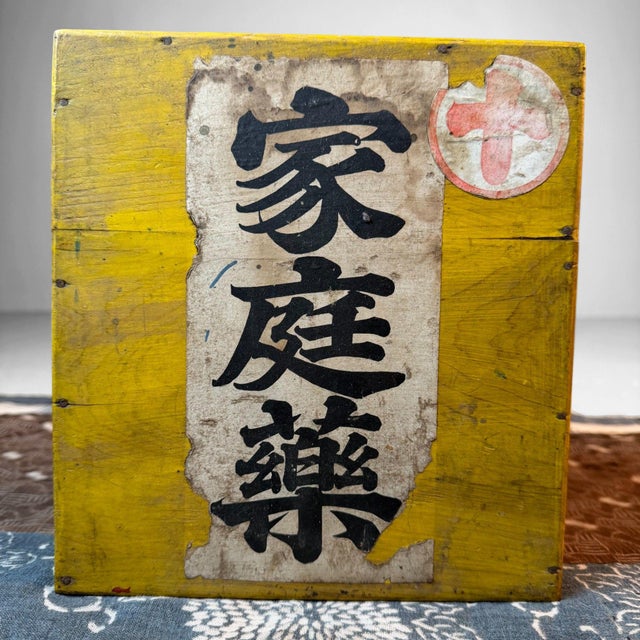 家庭藥